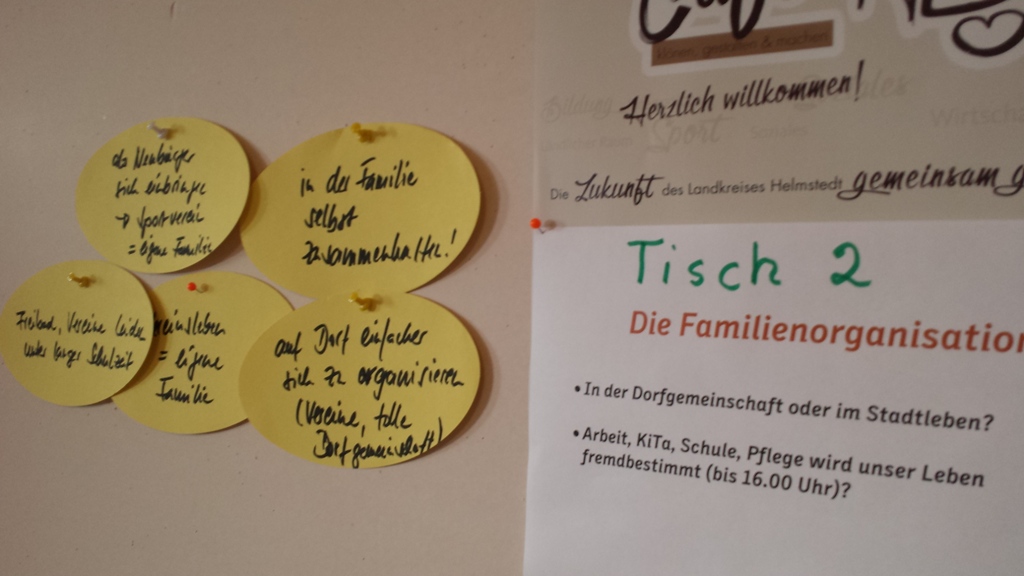 als Neubürger
sich einbringen
→ Sportverein
= eigene Familie
in der Familie
selbst
zusammenhalten!
Freibad, Vereine leiden
unter langer Schulzeit
einsleben
= eigene
Familie
auf Dorf einfacher
sich zu organisieren
(Vereine, tolle
Dorfgemeinschaft)
klönen, gestalten & machen
Herzlich willkommen!
Bildung
Sport
Soziales
Wirtscha
Die Zukunft des Landkreises Helmstedt gemeinsam g
Tisch 2
Die Familienorganisation
• In der Dorfgemeinschaft oder im Stadtleben?
• Arbeit, KiTa, Schule, Pflege wird unser Leben
fremdbestimmt (bis 16.00 Uhr)?